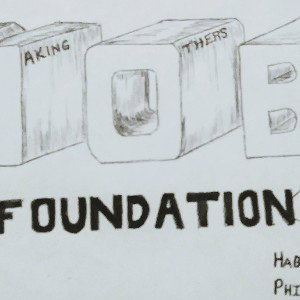 AKING THERS
O B
FOUNDATION
HAB
PHI